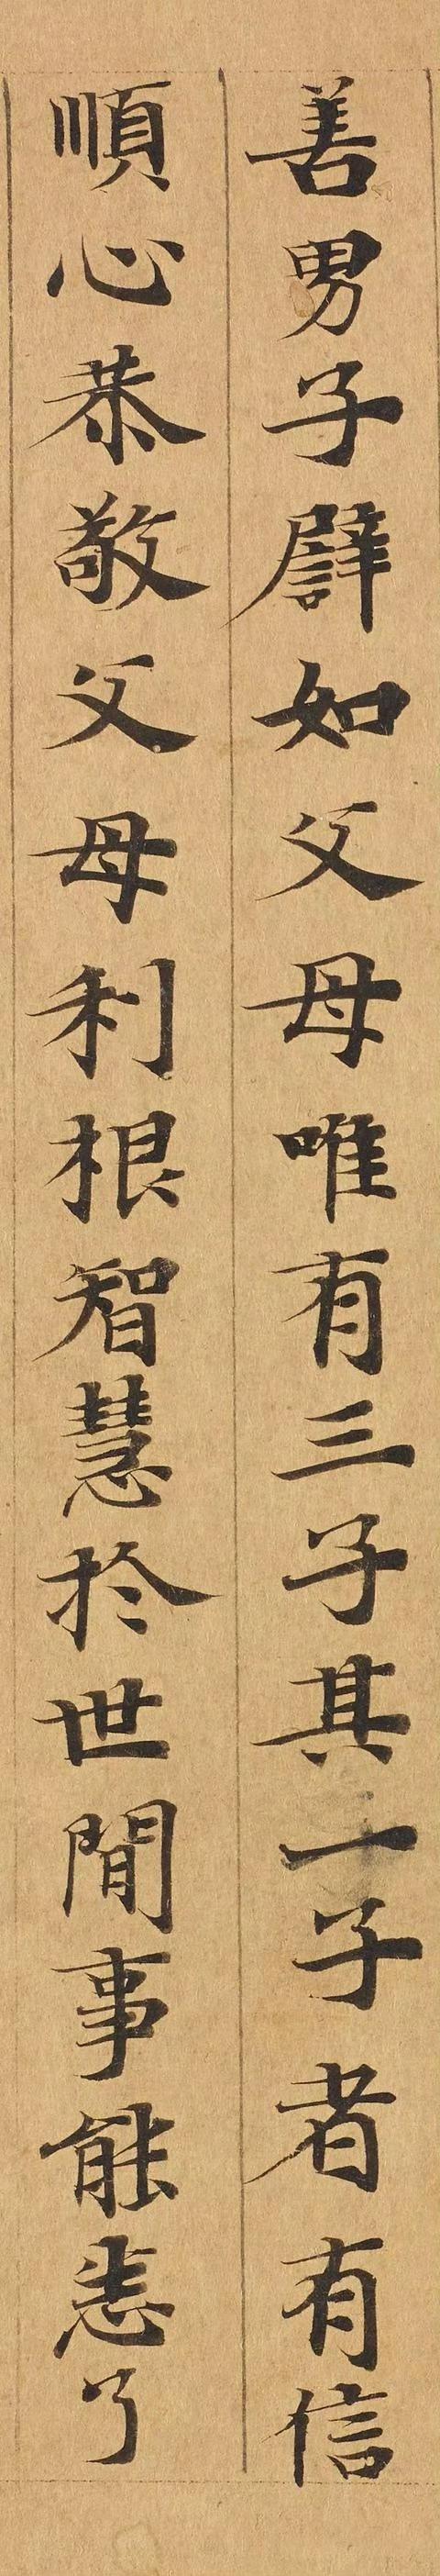 善男子譬如父母唯有三子其一子者有信
順心恭敬父母利根智慧於世間事能悉了